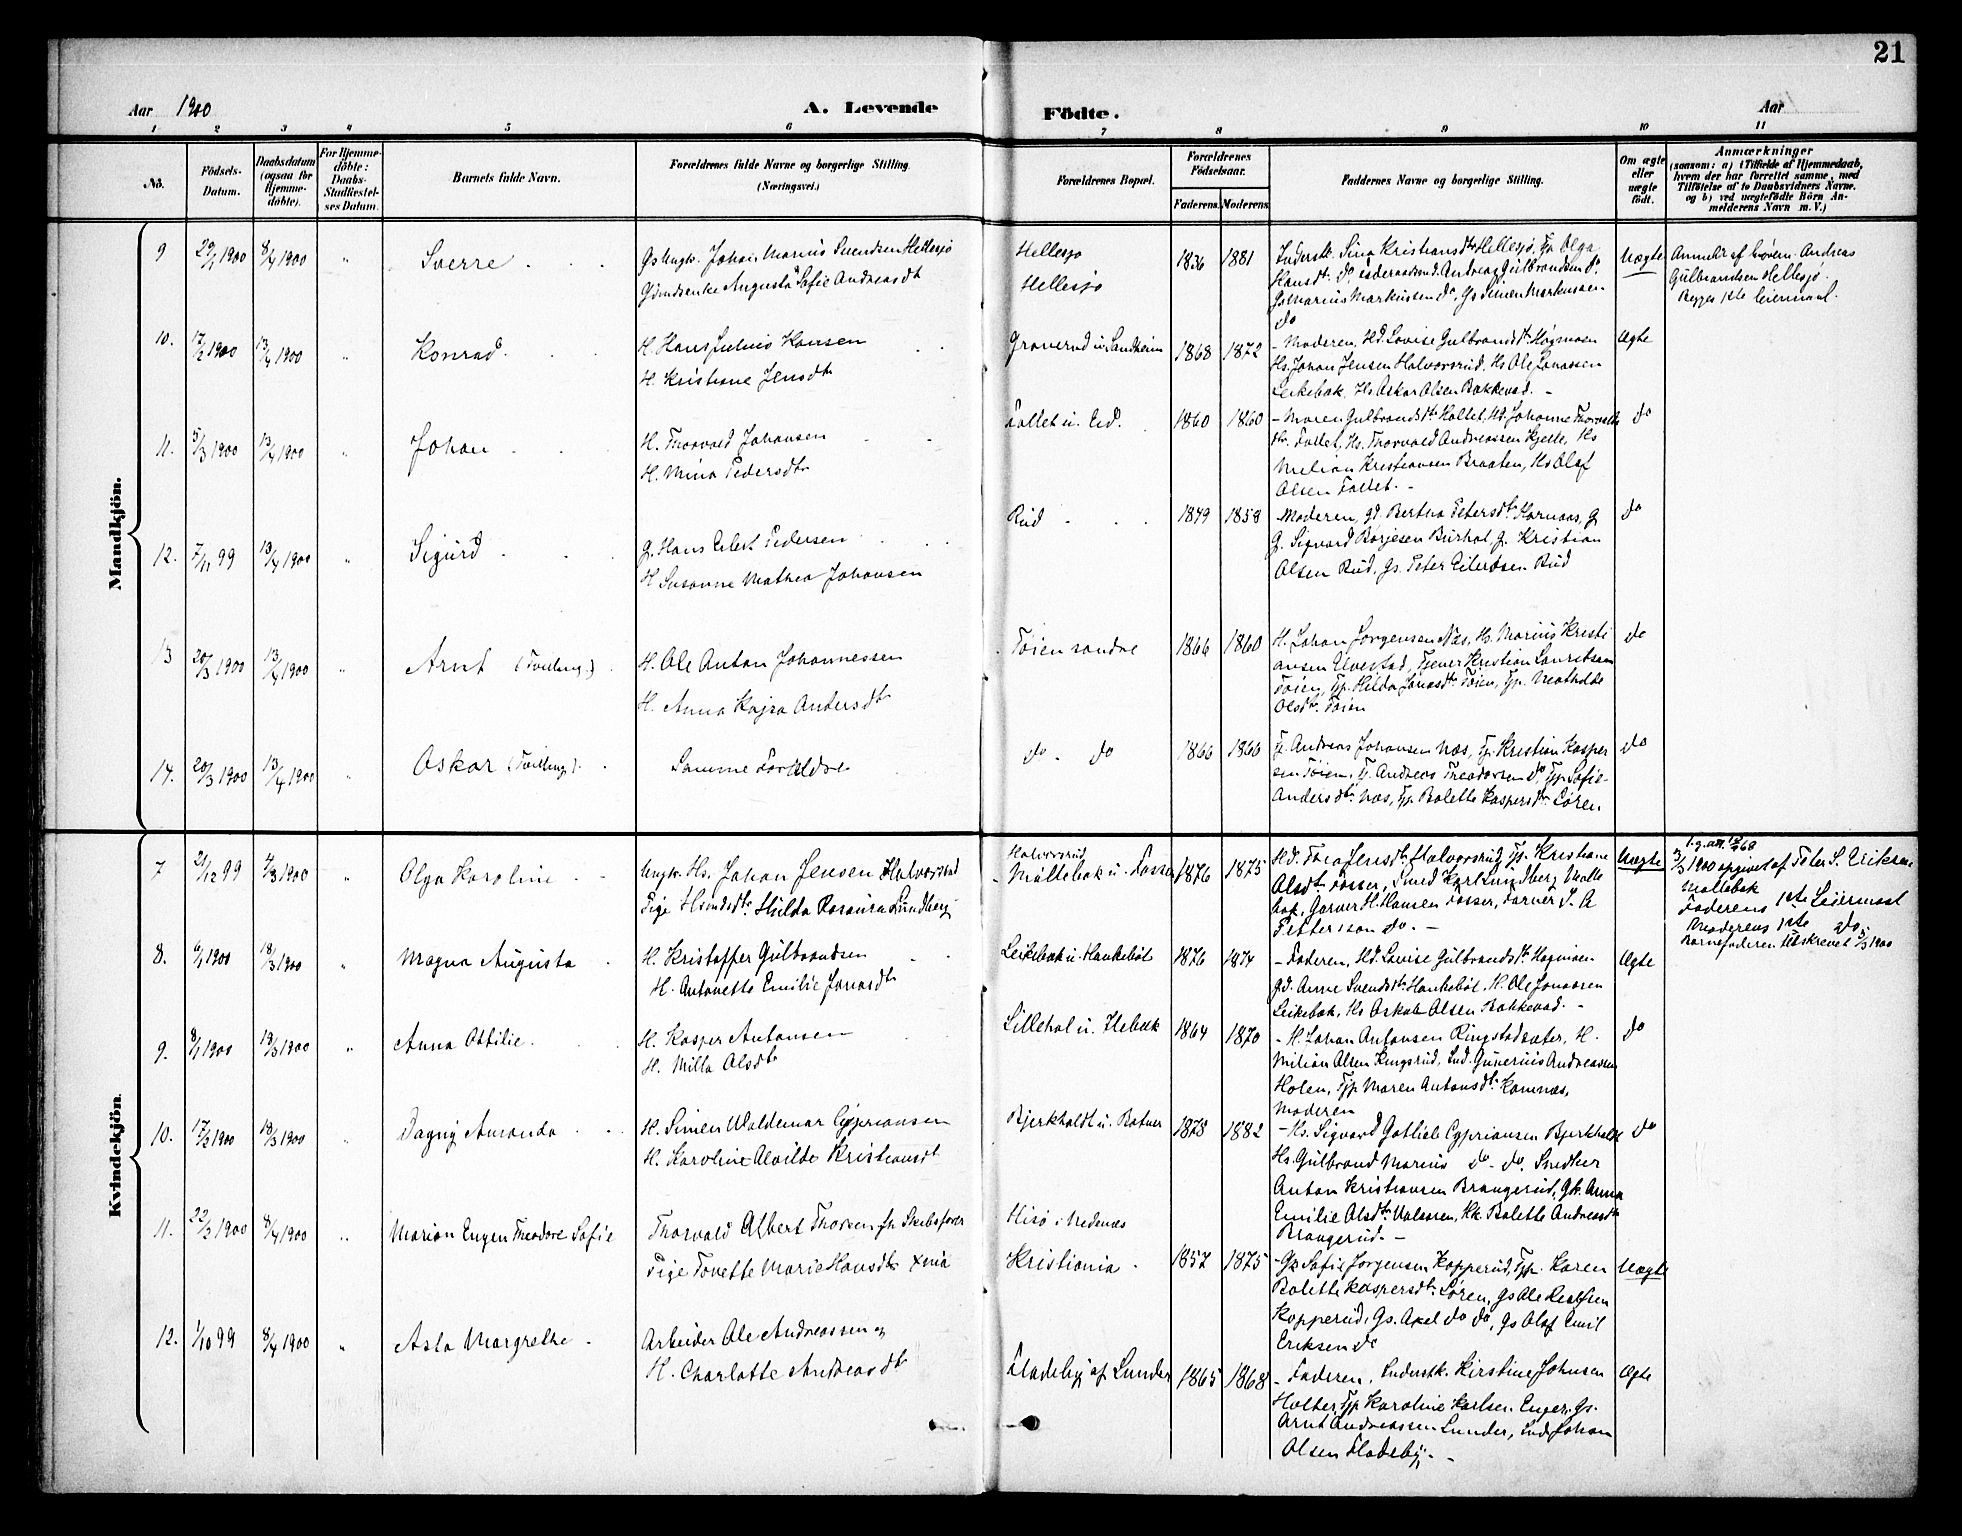 21
Aar 1900
A. Levende
Födte.
Aar
1 2 3 4 5 6 7 8 9 10 11
No.
Födsels-
Datum.
Daabsdatum
(ogsaa for
Hjemme-
døbte).
For Hjemme-
døbte:
Daabs-
Stadfæstel-
ses Datum.
Barnets fulde Navn.
Forældrenes fulde Navne og borgerlige Stilling.
(Næringsvei.)
Forældrenes Bopæl.
Forældrenes
Födselsaar.
Faderens. Moderens.
Faddernes Navne og borgerlige Stilling.
Om ægte
eller
uægte
født.
Anmærkninger
(saasom: a) i Tilfælde af Hjemmedaab,
hvem der har forrettet samme, med
Tilföielse af to Daabsvidners Navne.
og b) ved uægtefödte Börn An-
melderens Navn m. V.)
Mandkjön.
9 29/1 1900 8/4 1900 " Sverre
Gs Ungk. Johan Marius Svendsen Hellesjø
Gdmdsenke Augusta Sofie Andreasdt
Hellesjø
Hellesjø
1836 1881
Inderstk. Sina Kristiansdtr Hellesjø, Tp Olga
Hansdt. do, Føderaadsmd. Andreas Gulbrandsen do.
Gs Marius Markussen do, Gs Simen Markussen
do
Uægte
Anmeldt af Barnem. Andreas
Gulbrandsen Hellesjø.
Begges 1ste Leiermaal.
10. 17/2 1900 13/4 1900 " Konrad
H. Hans Julius Hansen
H. Kristiane Jensdtr
Graverud u. Sandheim 1868 1872
- Moderen, Hd. Lovise Gulbrandsdtr Høgmoen
Hs. Johan Jensen Halvorsrud, Hs Ole Jonassen
Leikebøk, Hs Oskar Olsen Bakkevad. -
Ægte
11. 5/3 1900 13/4 1900 " Johan
H. Thorvald Johansen
H. Mina Pedersdtr
Fallet u. Eid. 1860 1860
- Maren Gulbrandsdtr Hallet, Hd. Johanne Thorvalds
dtr. Fallet, Hs. Thorvald Andreassen Kjelle, Hs
Milian Kristiansen Braaten, Hs Olaf
Olsen Fallet. -
do
12. 7/11 99 13/4 1900 " Sigurd
G. Hans Eilert Pedersen
H Susanne Mathea Johansen
Rud 1849 1858
Moderen, gd. Bertha Petersdtr Kornaas, G
G. Sigvard Børjesen Burhol, G. Kristian
Olsen Rud, Gs. Peter Eilertsen Rud
do
13 20/3 1900 13/4 1900 " Arnt (Tvilling.)
H. Ole Anton Johannessen
H. Anna Kajsa Andersdt
Tøien søndre 1866 1860
H. Johan Jørgensen Næs, Hs. Marius Kristi
ansen Elvestad, Tjener Kristian Lauritsen
Tøien, Tp. Hilda Jonasdtr Tøien, Tp. Mathilde
Olsdtr. Tøien
do
14. 20/3 1900 13/4 1900 " Oskar (Tvilling).
Samme Forældre
do - do 1866 1860
Tj. Andreas Johansen Næs, Tp. Kristian Kasper
sen Tøien, Tj. Andreas Theodorsen do, Tp. Sofie
Andersdtr. Næs, Tp. Bolette Kaspersdtr Løren
do
Kvindekjön.
7 21/12 99 4/3 1900 Olga Karoline
Ungk. Hs. Johan Jensen Halvorsrud
Pige Hsmdsdtr Hulda Rosaura Lundberg
Halvorsrud
Møllebøk u. Fosser 1876 1875
Hd. Thea Jensdtr Halvorsrud, Tp. Kristiane
Olsdtr Fosser, Smed Karl Lundberg Mølle
bøk, Garver H. Hansen Fosser, Farver J. A
Petterson do. -
Uægte
3/3 1900 opgivet af Peter S. Eriksen
Møllebøk
Faderens 1ste Leiermaal
Moderens 1ste do
Barnefaderen tilskrevet 5/3 1900
8. 6/1 1900 18/3 1900 " Magna Augusta
H. Kristoffer Gulbrandsen
H. Antonette Emilie Jonasdtr
Leikebøk u. Hankebøl 1876 1874
- Faderen, Hd. Lovise Gulbrandsdtr Høgmoen
gd. Anne Svendsdtr Hankebøl, H. Ole Jonassen
Leikebøk, Hs Oskar Olsen Bakkevad. -
Ægte
9. 8/1 1900 18/3 1900 " Anna Ottilie
H. Kasper Antonsen
H. Milla Olsdtr
Lillehol u. Ilebæk 1864 1870
- H. Johan Antonsen Ringstadsæter, H.
Milian Olsen Kingsrud, Ind. Gunerius Andreassen
Holen, Tp Maren Antonsdtr. Kamnæs,
Moderen
do
10. 17/2 1900 18/3 1900 " Dagny Amanda
H. Simen Waldemar Cypriansen
H. Karoline Alvilde Kristiansdt
Bjerkholdt u. Botner 1878 1882
- Hs. Sigvard Gotlieb Cypriansen Bjerkholdt
Hs. Gulbrand Marius do - do. Snedker
Anton Kristiansen Brangerud, Gk. Anna
Emilie Olsdtr. Valseren, Hk. Bolette Andreasdtr
Brangerud. -
do
11. 22/3 1900 8/4 1900 " Marion Eugen Theodore Sofie
Thorvald Albert Thorsen fh. Skibsfører
Pige Tonette Marie Hansdtr Xnia
Hisø i Nedenæs
Kristiania 1857 1875
- Gk Sofie Jørgensen Kopperud, Tp. Karen
Bolette Kaspersdtr. Løren, Gs Ole Realfsen
Kopperud, Gs. Axel do do, Gs Olaf Emil
Eriksen do
Uægte
12. 1/10 99 8/4 1900 " Asta Margrethe
Arbeider Ole Andreassen og
H. Charlotte Andreasdtr
Fladeby af Lunder 1865 1868
- Faderen, Inderstk. Kirstine Johnsen
Holter, Tp Karoline Karlsen Enger, Gs.
Arnt Andreassen Lunder, Ind. Johan
Olsen Fladeby. -
Ægte